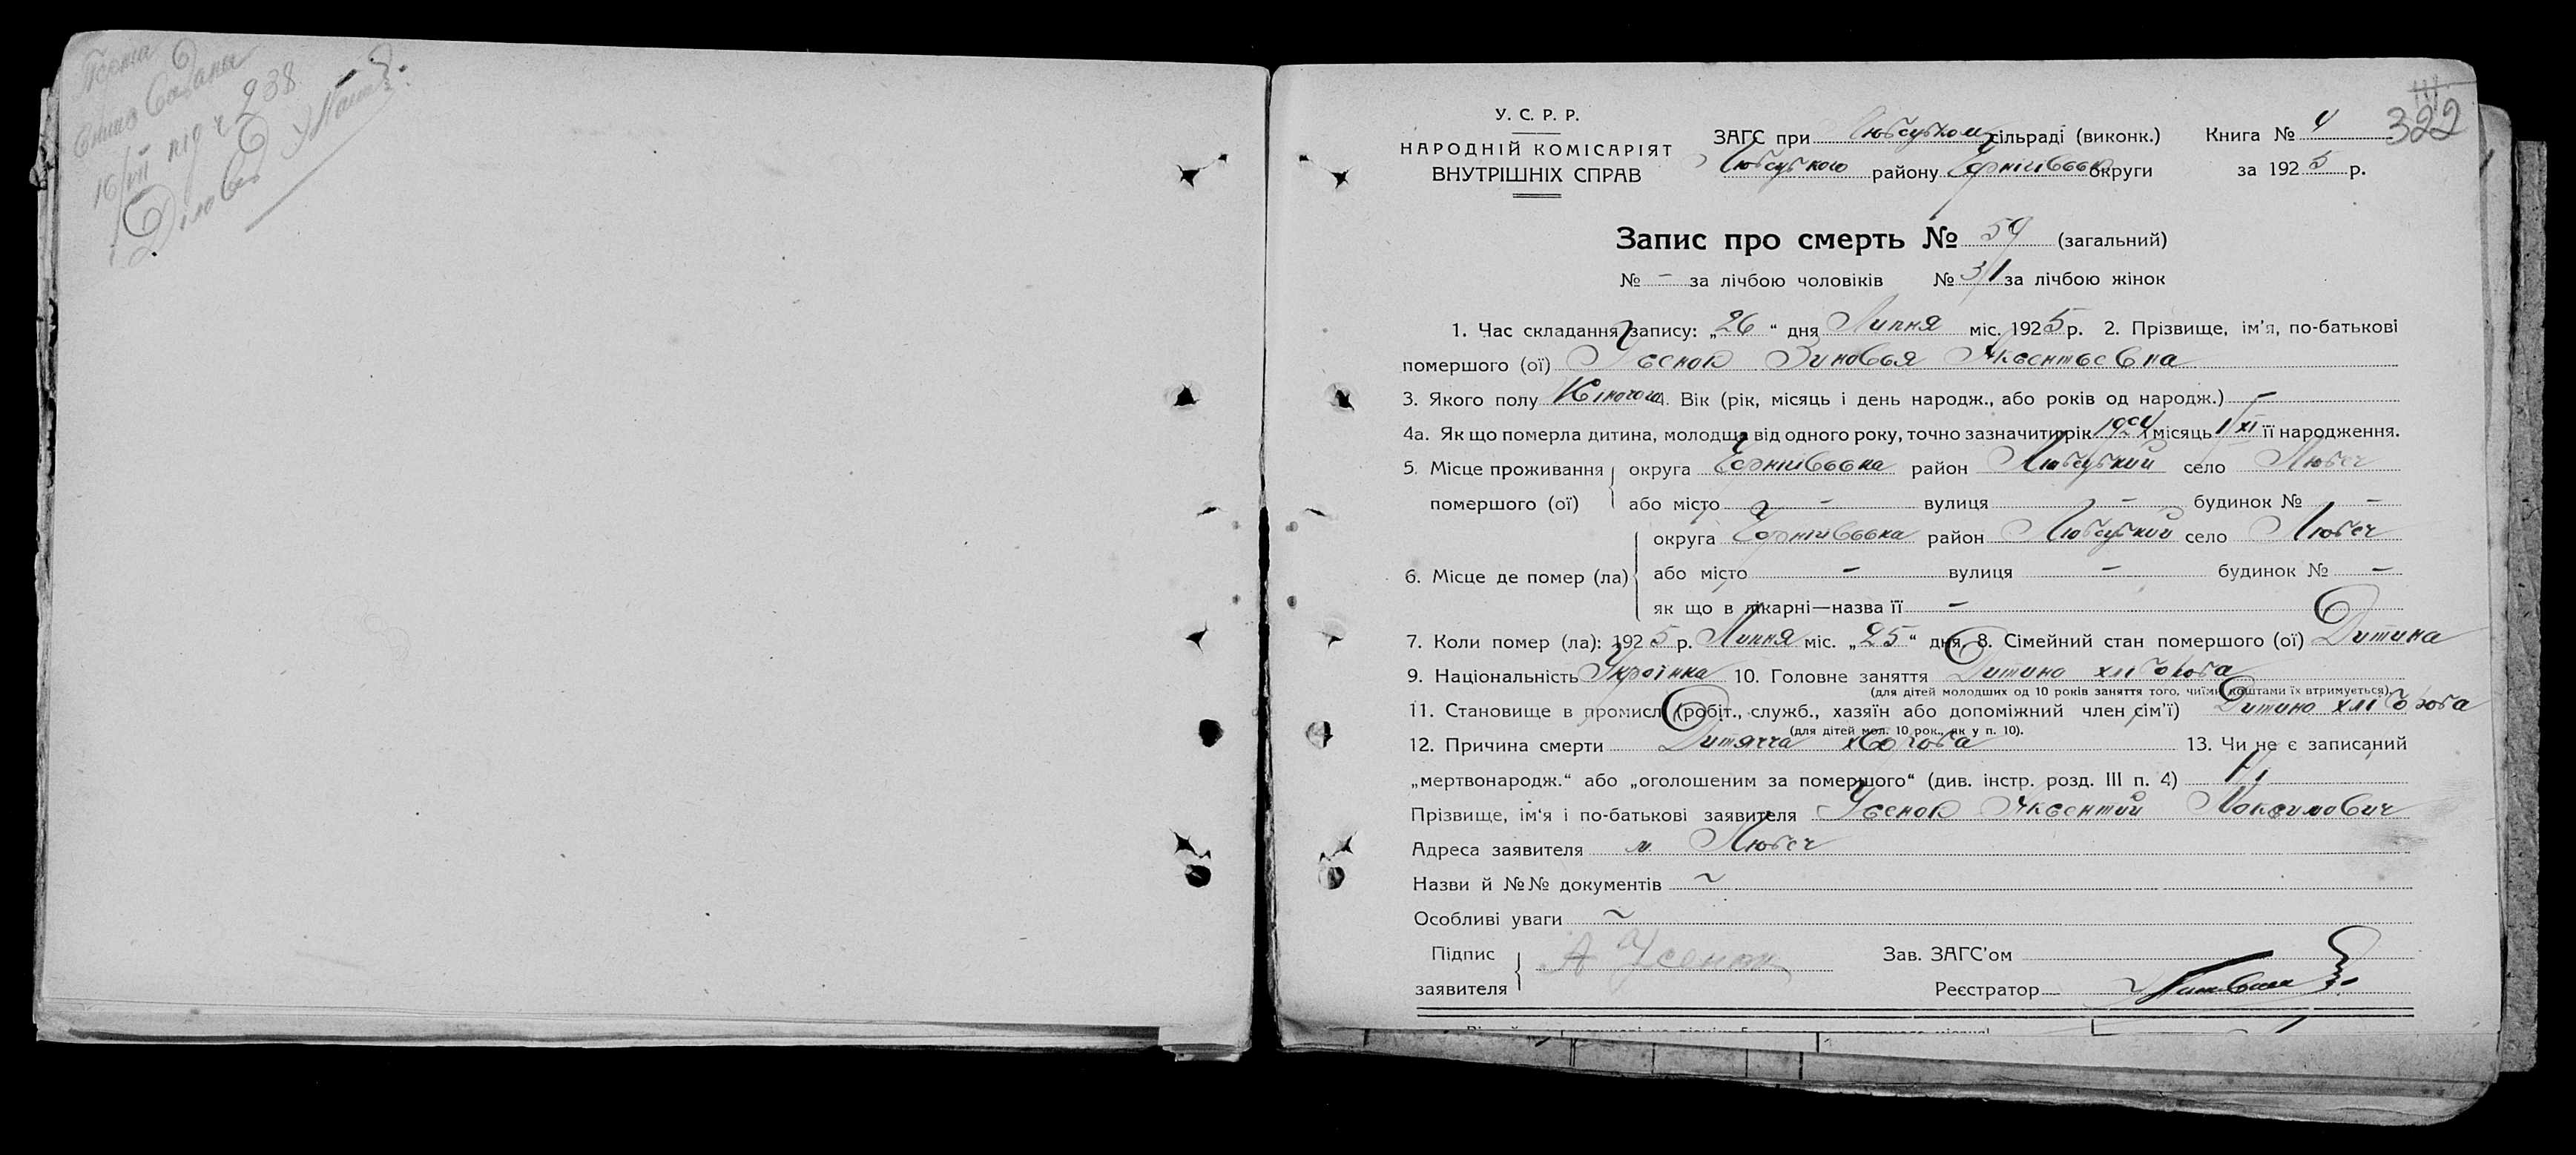 16/VII
238
322
У. С. Р. Р.
НАРОДНІЙ КОМІСАРІЯТ
ВНУТРІШНІХ СПРАВ
ЗАГС при Любецьком сільраді (виконк.) Книга № 4
Любецького району Чернігівської округи за 1925 р.
Запис про смерть № 59 (загальний)
№ - за лічбою чоловіків № 31 за лічбою жінок
1. Час складання запису: „26“ дня Липня міс. 1925 р. 2. Прізвище, ім'я, по-батькові
помершого (ої) Усенок Зиновья Яксентьевна
3. Якого полу Жіночого 4. Вік (рік, місяць і день народж., або років од народж.) -
4а. Як що померла дитина, молодша від одного року, точно зазначити рік 1924 місяць 1/XI її народження.
5. Місце проживання округа Чернігівська район Любецький село Любеч
помершого (ої) або місто - вулиця - будинок № -
округа Чернігівська район Любецький село Любеч
6. Місце де помер (ла) або місто - вулиця - будинок № -
як що в лікарні—назва її -
7. Коли помер (ла): 1925 р. Липня міс. „25“ дня. 8. Сімейний стан помершого (ої) Дитина
9. Національність Українка 10. Головне заняття Дитина хлібороба
(для дітей молодших од 10 років заняття того, чиїми коштами їх втримується).
11. Становище в промислі (робіт., служб., хазяїн або допоміжний член сім'ї) Дитина хлібороба
(для дітей мол. 10 рок., як у п. 10).
12. Причина смерти Дитяча хвороба 13. Чи не є записаний
„мертвонародж.“ або „оголошеним за помершого“ (див. інстр. розд. III п. 4) Ні
Прізвище, ім'я і по-батькові заявителя Усенок Яксентий Максимович
Адреса заявителя м Любеч
Назви й №№ документів ~
Особливі уваги ~
Підпис
заявителя А Усенок
Зав. ЗАГС'ом
Реєстратор